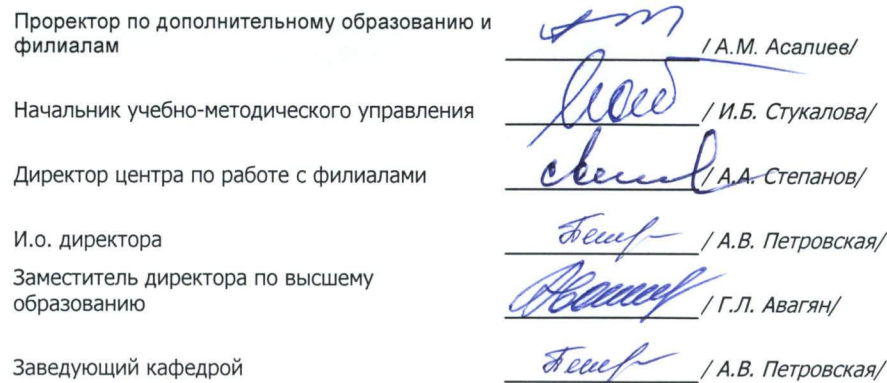 Проректор по дополнительному образованию и
филиалам / А.М. Асалиев/
Начальник учебно-методического управления / И.Б. Стукалова/
Директор центра по работе с филиалами / А.А. Степанов/
И.о. директора / А.В. Петровская/
Заместитель директора по высшему
образованию / Г.Л. Авагян/
Заведующий кафедрой / А.В. Петровская/